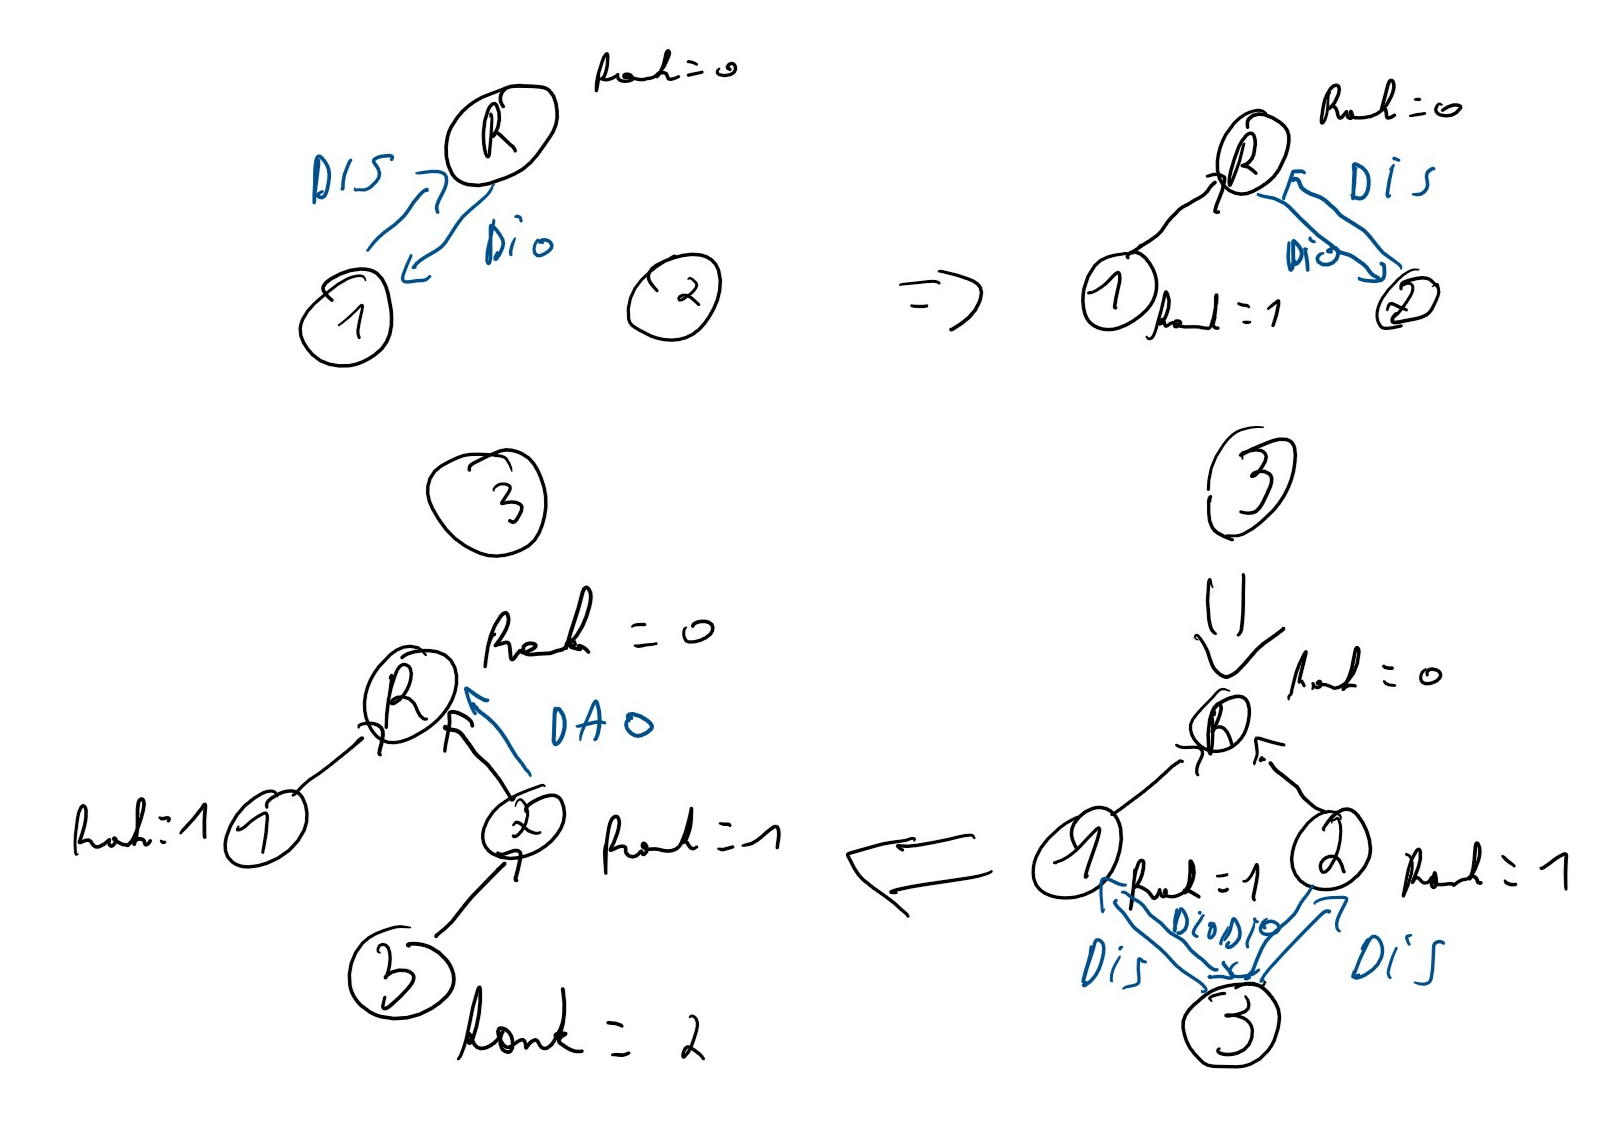 Rank = 0
R
DIS
Dio
1
2
3
Rank = 0
R
Dis
Dio
1
Rank = 1
2
3
Rank = 0
R
1
2
Rank = 1
Rank = 1
Dio Dio
Dis
Dis
3
Rank = 0
R
DAO
Rank = 1
1
2
Rank = 1
3
Rank = 2